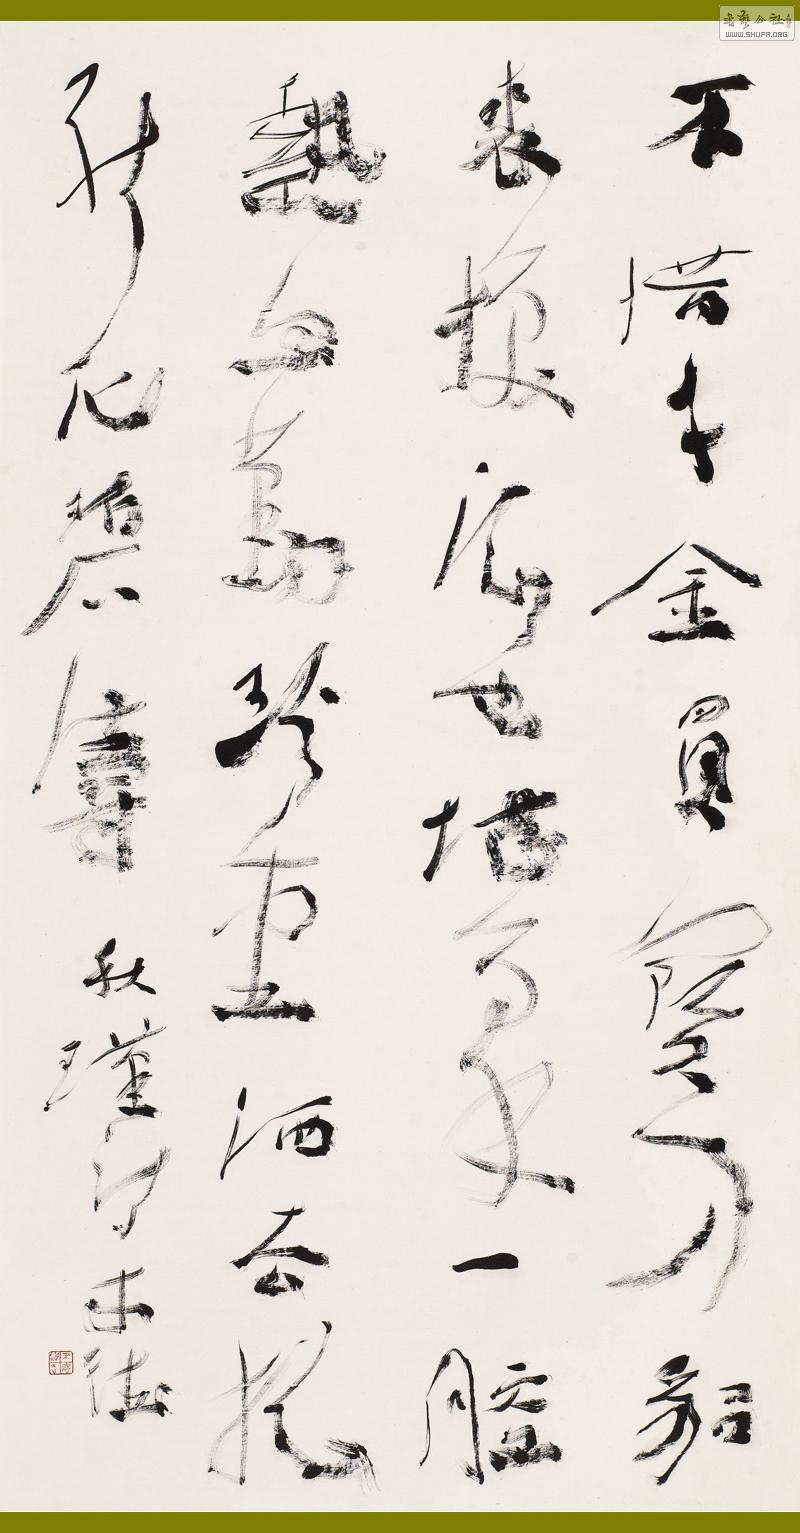 書藝公社
WWW.SHUFA.ORG
不惜千金買寶刀貂
裘換酒也堪豪一腔
熱血勤珍重洒去猶
能化碧濤 秋瑾詩